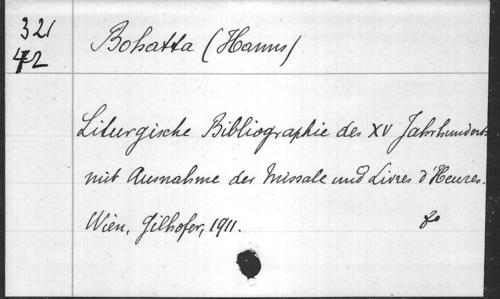 321
42
Bohatta (Hanns)
Liturgische Bibliographie des XV Jahrhunderts
mit Ausnahme der Missale und Livres d'Heures.
Wien, Gilhofer, 1911.